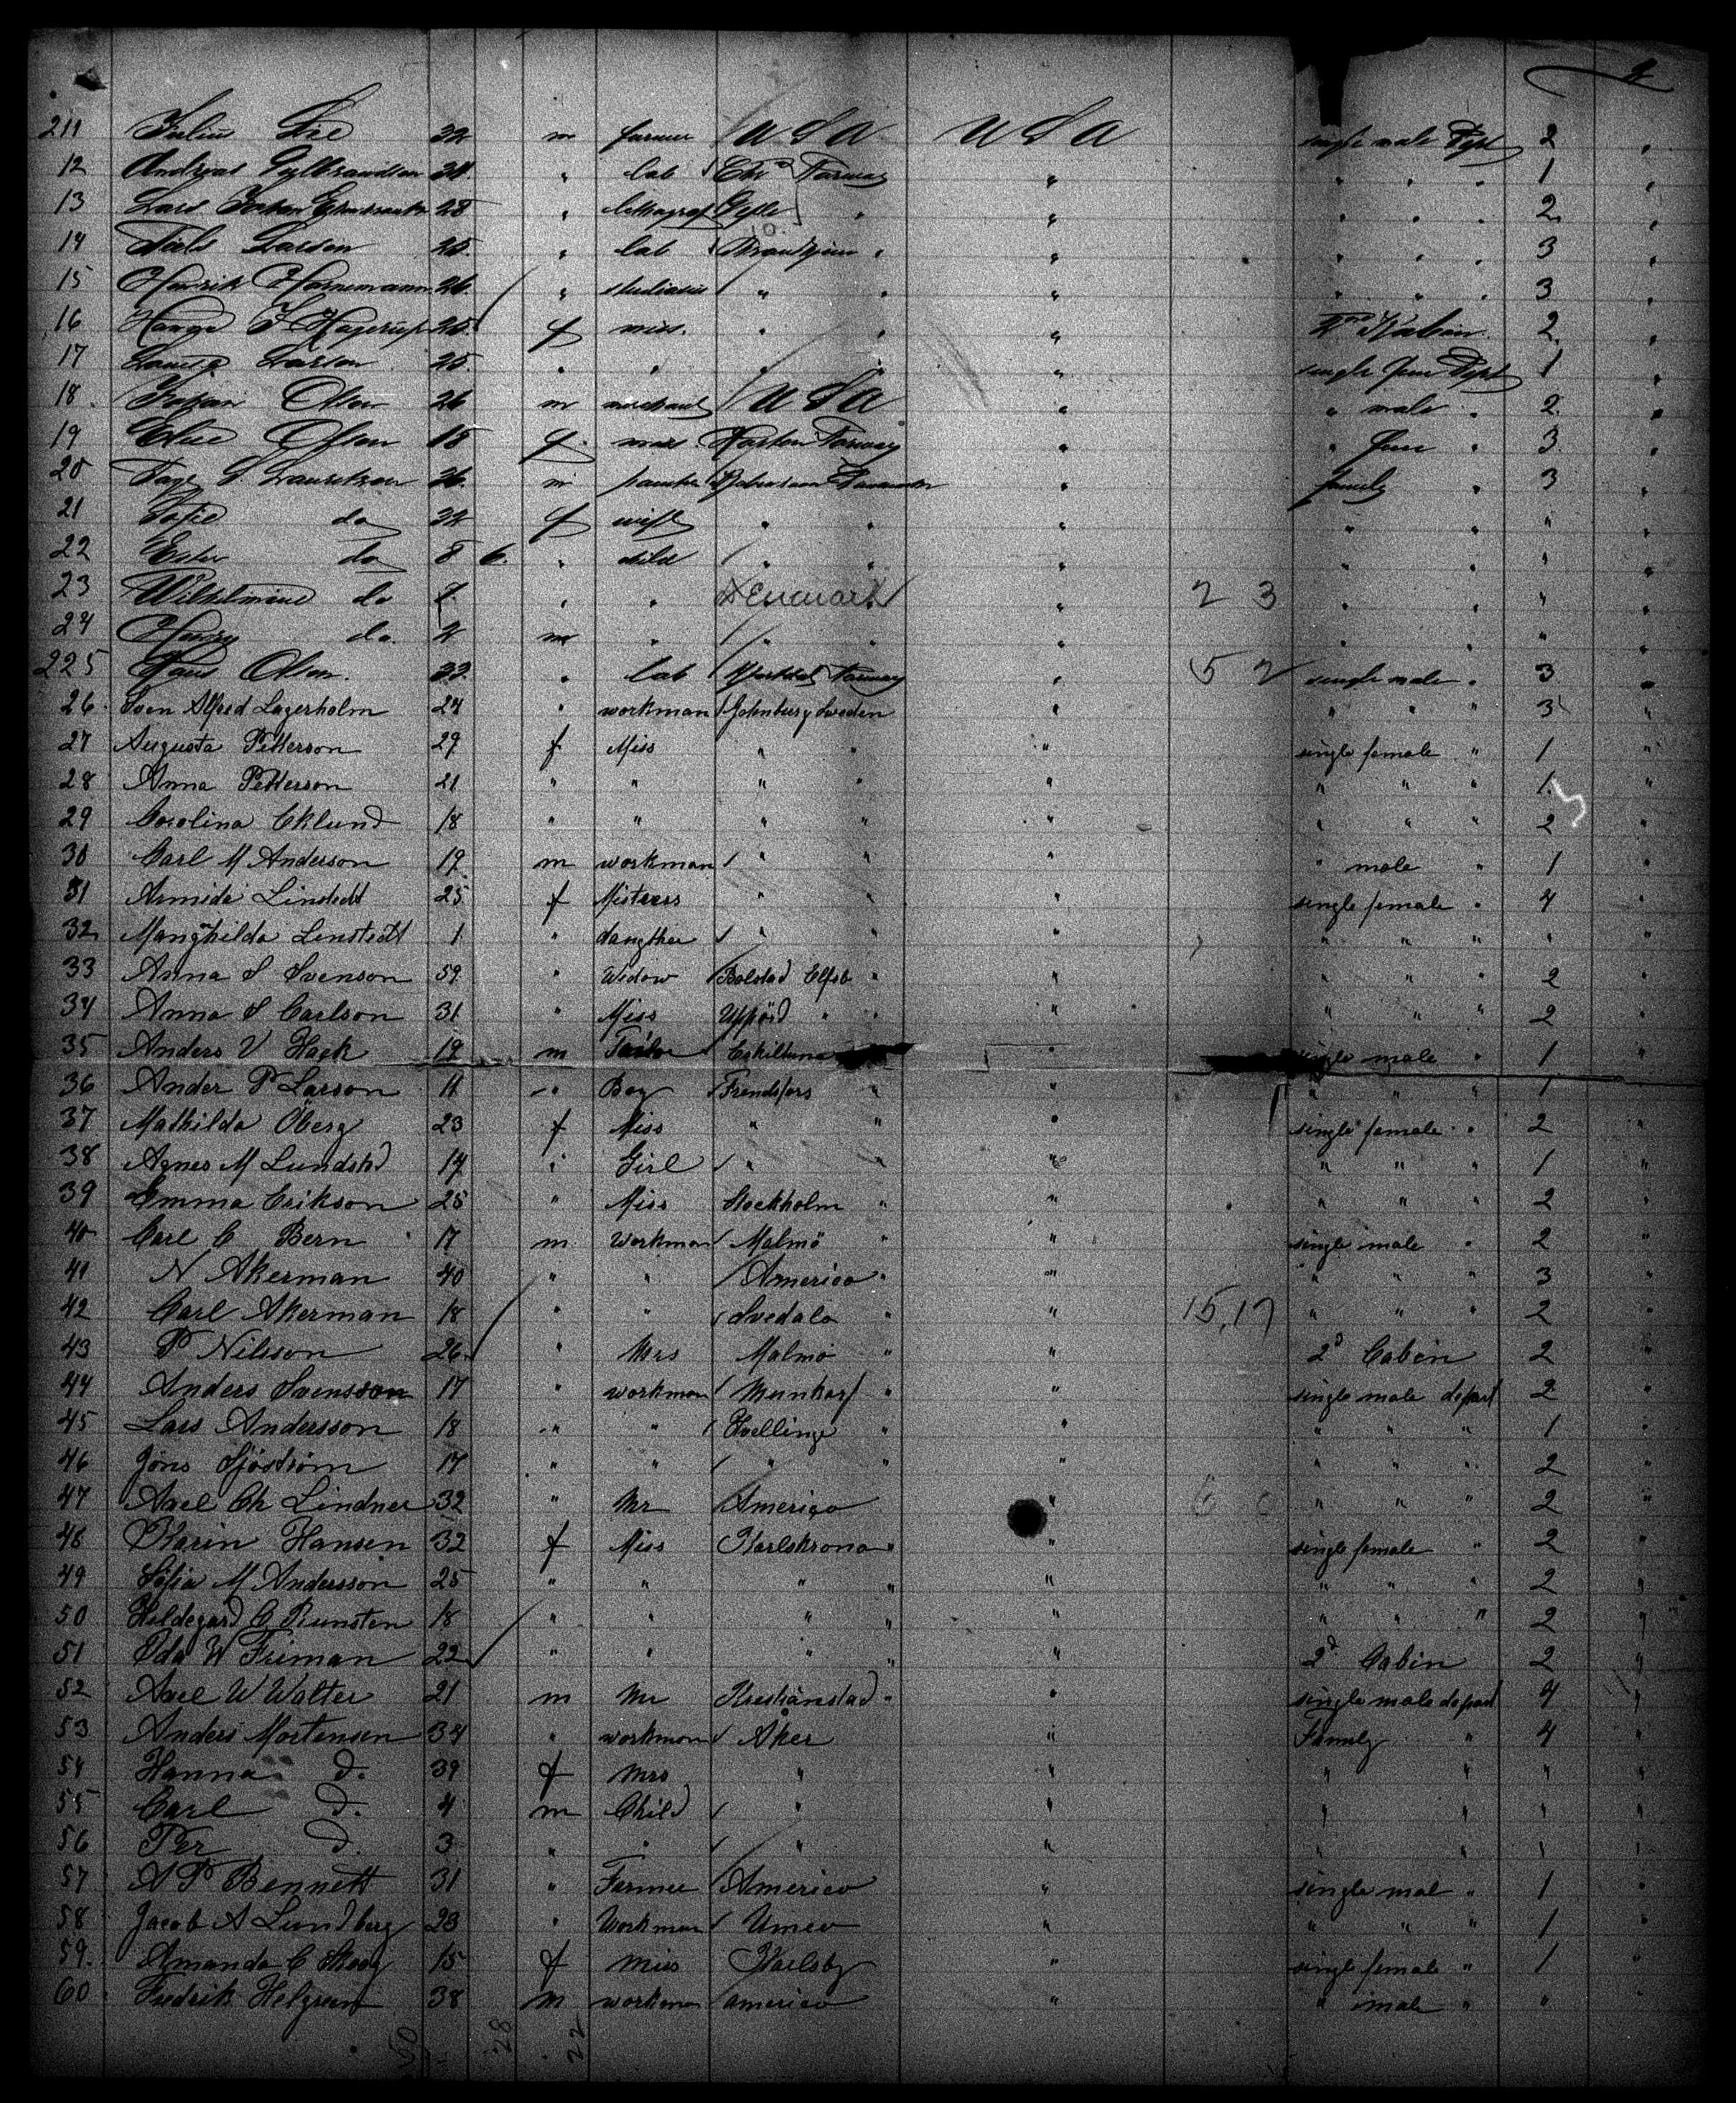 211 Julius Lie 32 m farmer USA USA single male Dept 2
12 Andreas lab Chr Norway " " " " 1
13 Lars Johan 28 " Gefle " " " " 2
14 Niels Larsen 25 " lab " " " " " 3
15 Henrik Hornemann 26 " " " " " " " 3
16 J Hagerup 25 f miss " " " Kabin 2
17 Larsen 25 " " " " " single Fem Dept 1
18 Johan Olsen 26 m merchant USA " " male " 2
19 Olsen 18 f miss Norway " " Fem " 3
20 S. Lauritzen 36 m " Family " 3
21 Sofie do 32 f wife " " " " " "
22 Ester do 8 6 " child " " " " " "
23 Wilhelmine do " " Denmark " 2 3 " " "
24 Harry do 2 m " " " " " " "
225 Hans Olsen 33 " lab Norway " 5 2 single male " 3
26 Sven Alfred Lagerholm 24 " workman Gotenburg Sweden " " " " 3 "
27 Augusta Petterson 29 f Miss " " " single female " 1 "
28 Anna Petterson 21 " " " " " " " " 1 "
29 Carolina Eklund 18 " " " " " " " " 2 "
30 Carl M Anderson 19 m workman " " " " male " 1 "
31 Armida Linstedt 25 f Mistress " " " single female " 4 "
32 Manghilda Lenstedt 1 " daugther " " " " " " " "
33 Anna S Svenson 59 " Widow Bolstad Elfsb " " " " " 2 "
34 Anna S Carlson 31 " Miss " " " " " " 2 "
35 Anders V Hack 19 m Tailor Eskiltuna " single male " 1 "
36 Ander P Larson 11 " Boy Frendsfors " " " " " 1 "
37 Mathilda Öberg 23 f Miss " " " single female " 2 "
38 Agnes M 14 " Girl " " " " " " 1 "
39 Emma Erikson 25 " Miss Stockholm " " " " " 2 "
40 Carl C Bern 17 m Workman Malmö " " single male " 2 "
41 N Akerman 40 " " America " " " " " 3 "
42 Carl Akerman 18 " " Svedala " " 15,17 " " " 2 "
43 P Nilsson 26 " Mrs Malmö " " 2d Cabin 2 "
44 Anders Svensson 17 " workman " " single male depart 2 "
45 Lars Andersson 18 " " Hvellinge " " " " " 1 "
46 Jöns Sjöström 17 " " " " " " " " 2 "
47 Axel Ch Lindner 32 " Mr America " 6 " " " 2 "
48 Karin Hansen 32 f Miss Karlskrona " " single female " 2 "
49 Sofia M Andersson 25 " " " " " " " " 2 "
50 Hildegard C 18 " " " " " " " " 2 "
51 Ida W Friman 22 " " " " " 2d Cabin 2 "
52 Axel W Walter 21 m Mr Kristianstad " " single male depart 4 "
53 Anders Mortensen 34 " workman Aker " Family " 4 "
54 Hanna D. 39 f Mrs " " " " " "
55 Carl D. 4 m Child " " " " " "
56 Per D. 3 " " " " " " " "
57 A P Bennett 31 " Farmer America " single mal " 1 "
58 Jacob A Lundberg 23 " Workman Umea " " " " 1 "
59 Amanda C Skoog 15 f Miss Karlsby " single female " 1 "
60 Fredrik Helgren 38 m workman america " " male " " "
50 28 22